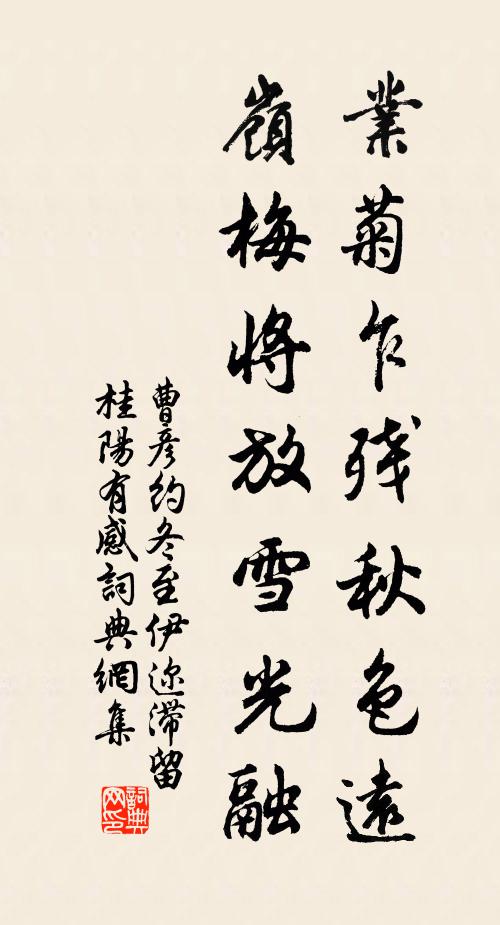 業菊乍残秋色遠
嶺梅將放雪光融
曹彦約冬至伊迩滞留
桂陽有感詞典網集
詞典
网印